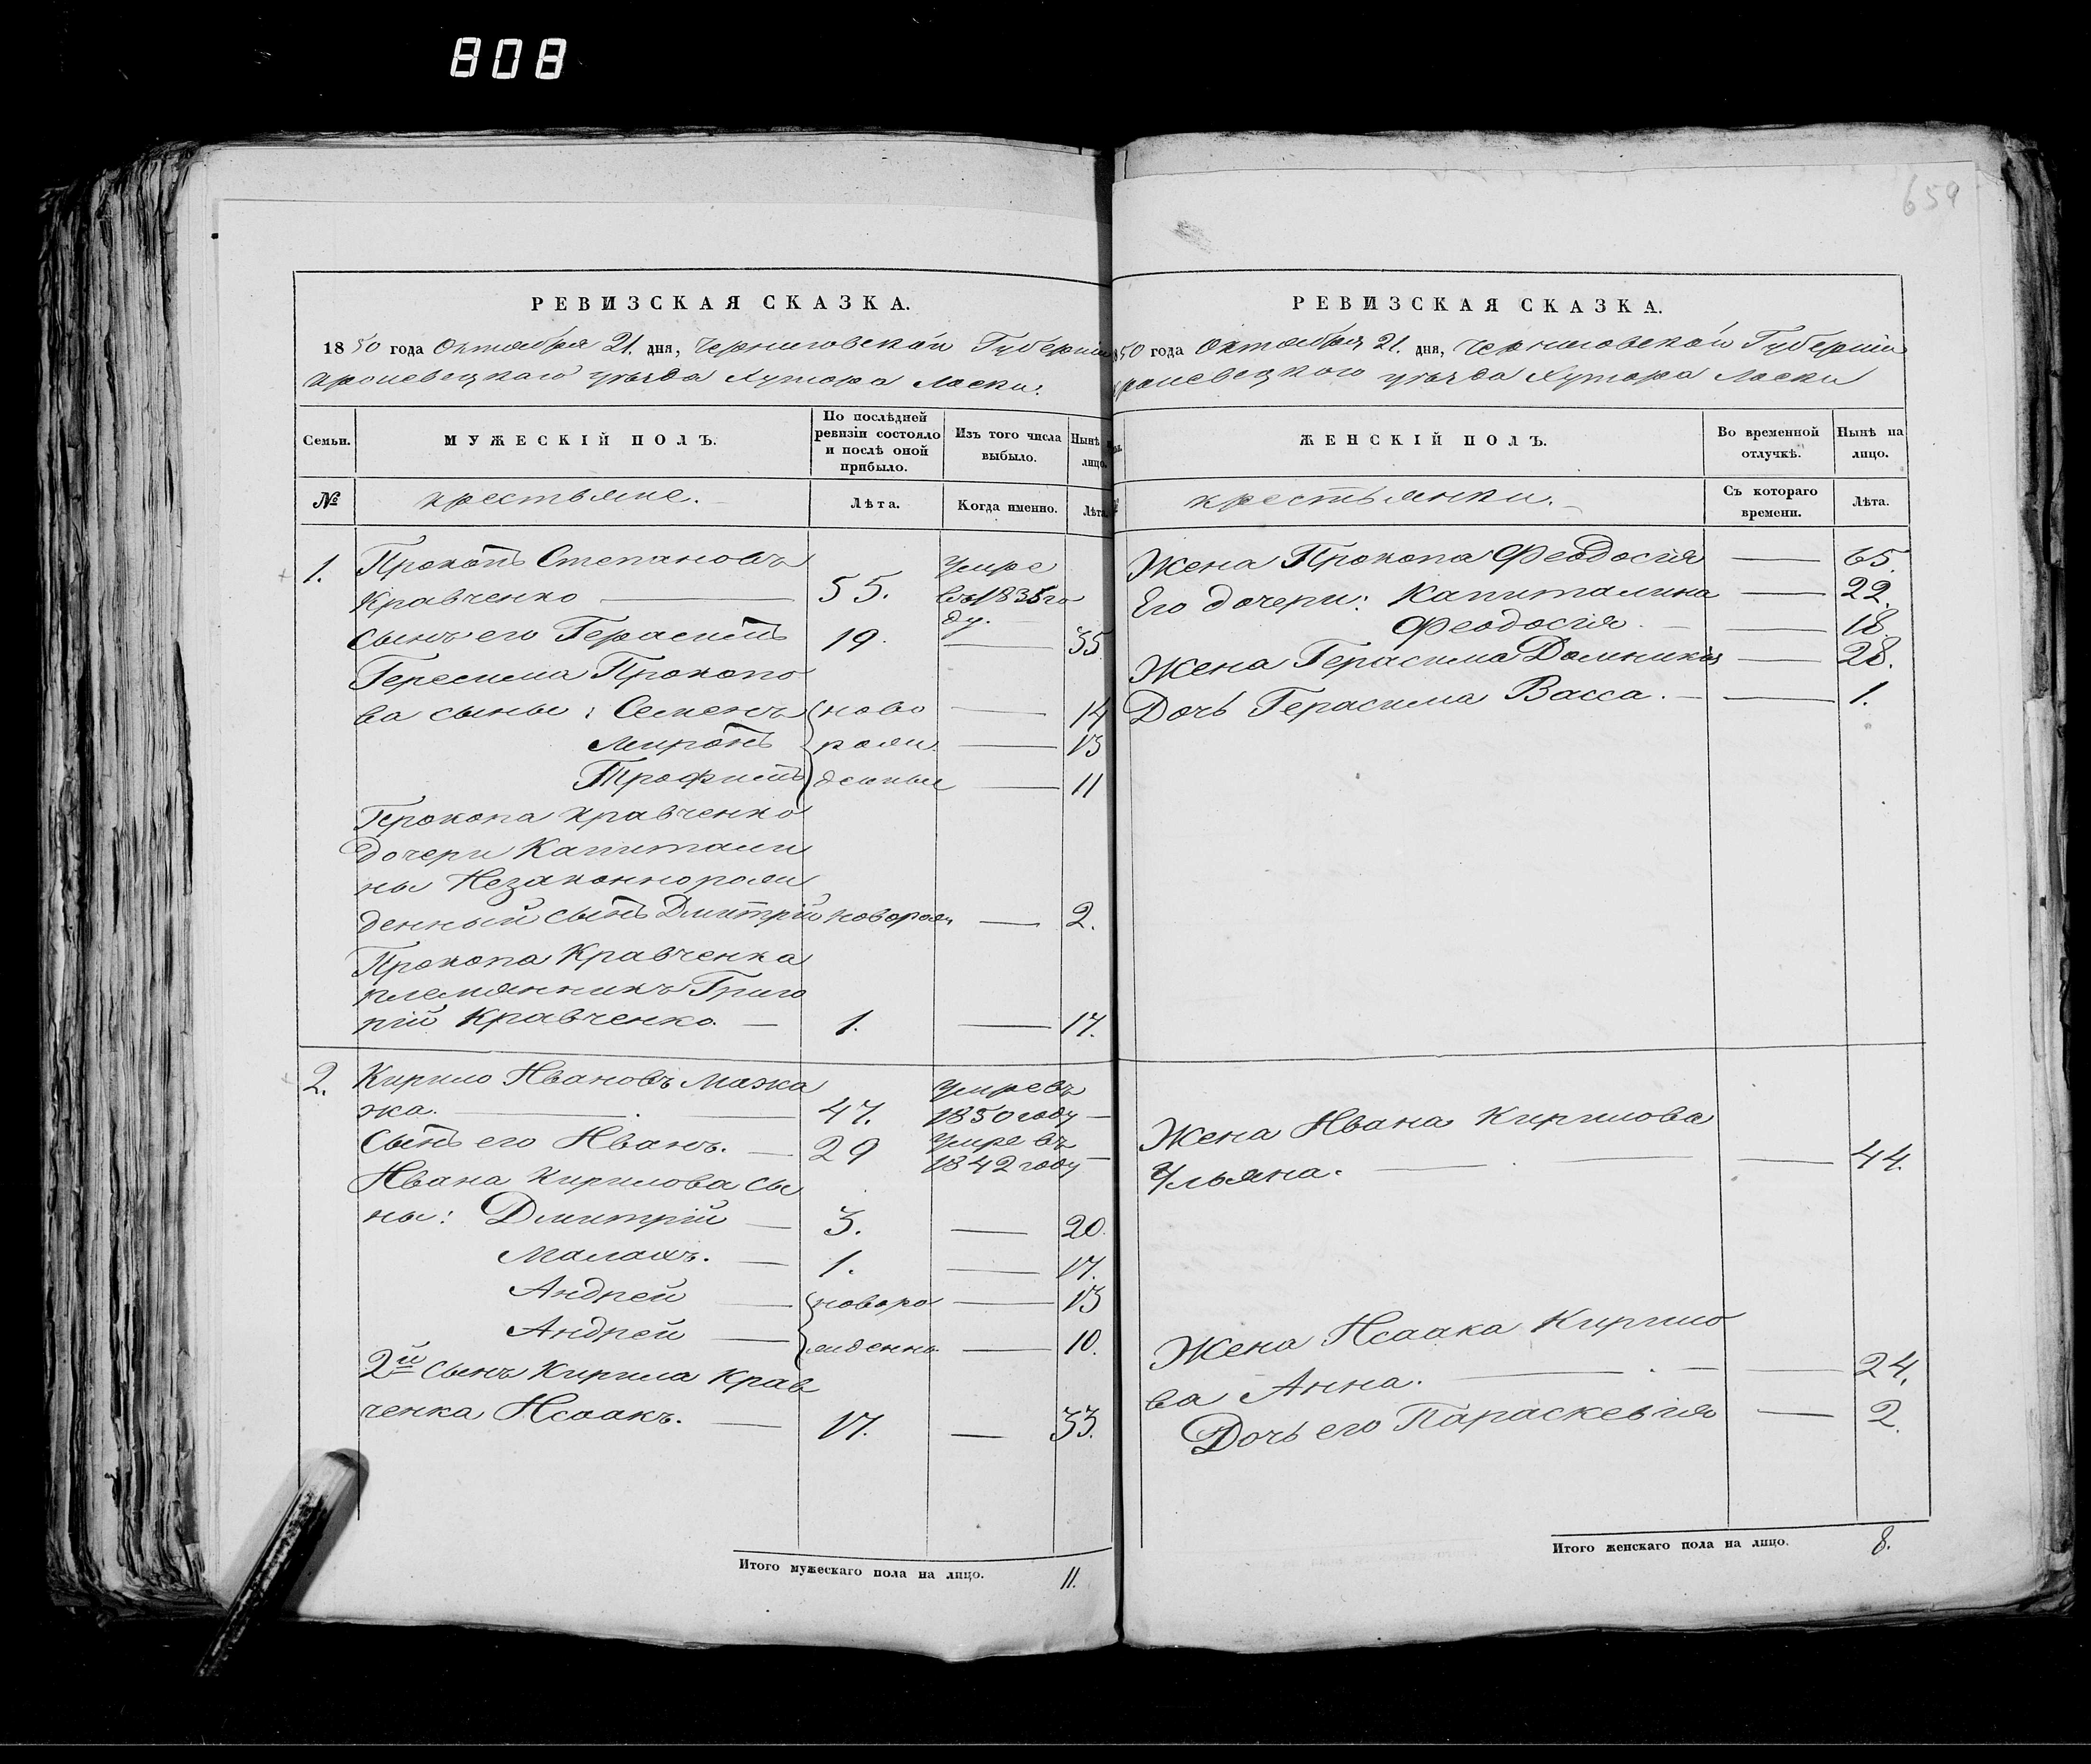 808
659
РЕВИЗСКАЯ СКАЗКА.
1850 года Октября 21. дня, Черниговской Губерніи
Кролевецкаго уѣзда Хутора Ласки.
Семьи. МУЖЕСКІЙ ПОЛЪ. По послѣдней ревизіи состояло и послѣ оной прибыло. Изъ того числа выбыло. Нынѣ на лицо.
№ крестьяне. Лѣта. Когда именно. Лѣта.
1. Прокопъ Степановъ Умре
Кравченко 55. въ 1835 го
ду.
Сынъ его Герасимъ 19. 35
Герасима Прокопо
ва сыны: Семенъ ново 14
Миронъ рож 13
Трофимъ денные 11
Прокопа Кравченко
дочери Капитали
ны Незаконнорож
денный сынъ Дмитрій новорож. 2.
Прокопа Кравченка
племянникъ Григо
рій Кравченко. 1. 17.
2. Кирило Ивановъ Умре въ
жка. 47. 1850 году
Сынъ его Иванъ. 29 Умре въ
1842 году
Ивана Кирилова сы
ны: Дмитрій 3. 20.
Малахъ. 1. 17.
Андрей новоро 13
Андрей жденны 10.
2й Сынъ Кирила Крав
ченка Исаакъ. 17. 33.
Итого мужескаго пола на лицо. 11.
РЕВИЗСКАЯ СКАЗКА.
50 года Октября 21. дня, Черниговской Губерніи
ролевецкого уѣзда Хутора Ласки
ЖЕНСКІЙ ПОЛЪ. Во временной отлучкѣ. Нынѣ на лицо.
крестьянки. Съ котораго времени. Лѣта.
Жена Прокопа Феодосія 65.
Его дочери: Капиталина 22.
Феодосія. 18.
Жена Герасима Домникія 28.
Дочь Герасима Васса. 1.
Жена Ивана Кирилова
Ульяна. 44.
Жена Исаака Кирило
ва Анна. 24.
Дочь его Параскевія 2.
Итого женскаго пола на лицо. 8.